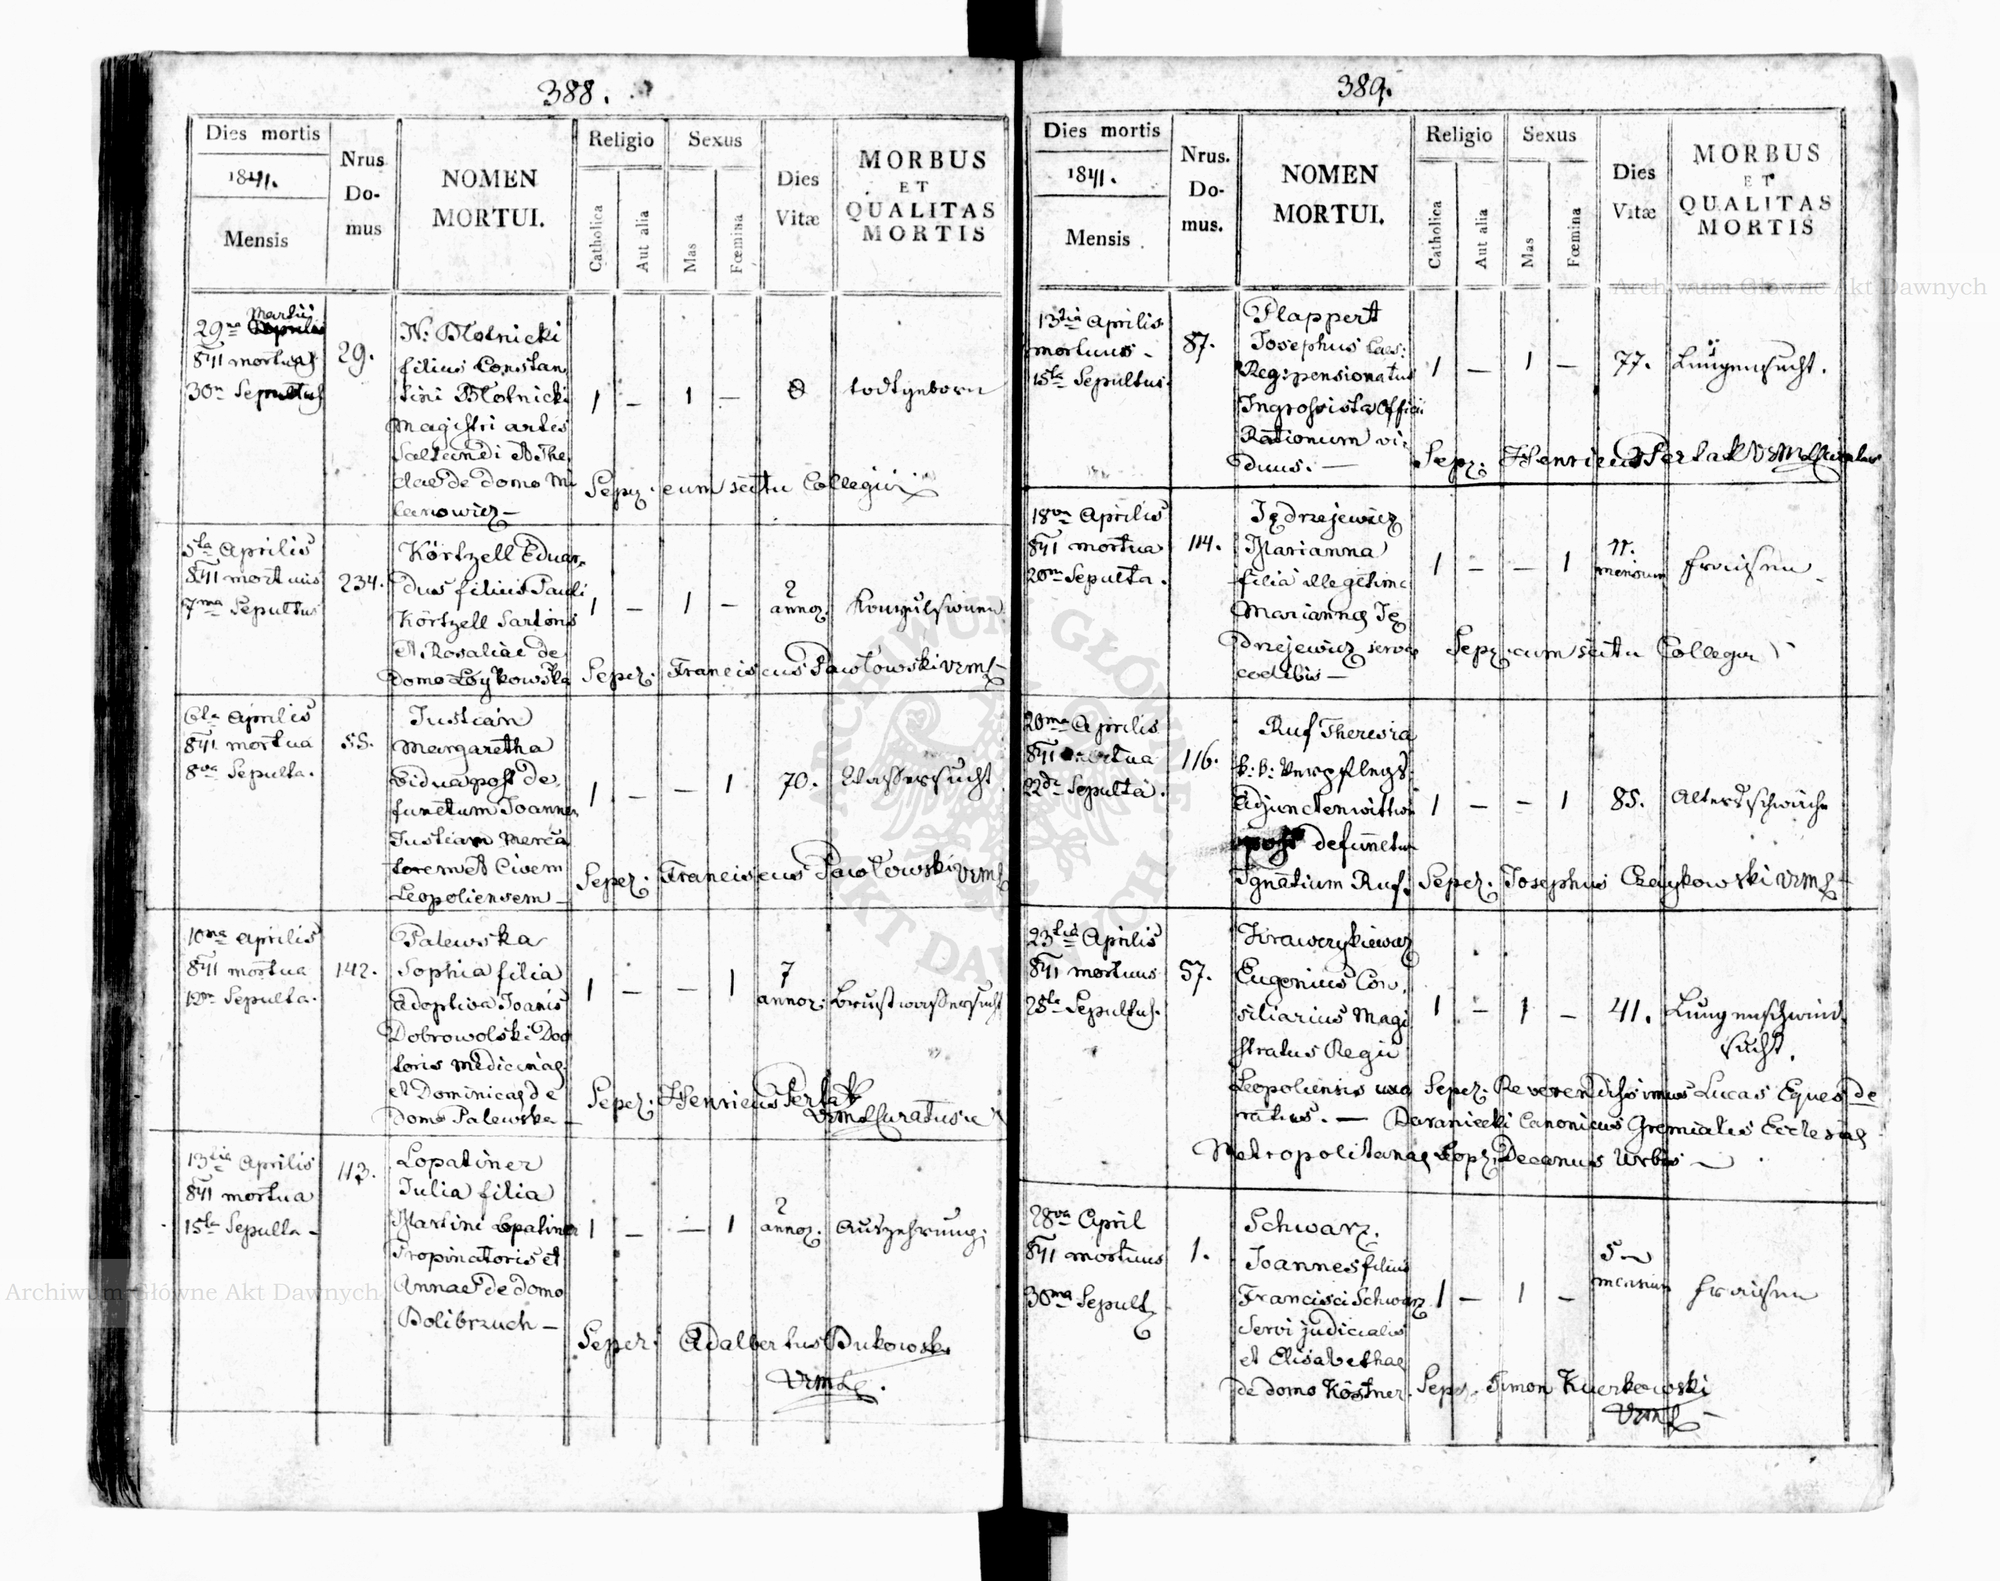 388.
Dies mortis
1841.
Mensis
Nrus
Do-
mus
NOMEN
MORTUI.
Religio
Catholica
Aut alia
Sexus
Mas
Fœmina
Dies
Vitæ
MORBUS
ET
QUALITAS
MORTIS
Martii
29na Aprilis
841 mortuus
30a Sepultus
29.
N. Błotnicki
filius Constan
tini Błotnicki
Magistri artis
Saltandi et The
clae de domo Mi
lanowicz —
1 — 1 — 0 todtgeborn
Sepez. cum scitu Collegii
5ta Aprilis
841 mortuus
7ma Sepultus
234.
Körtzell Eduar
dus filius Pauli
Körtzell Sartoris
et Rosaliae de
Domo Łoykowska
1 — 1 — 2
annoz. Konvulsionen
Sepez. Franciscus Pawłowski VRML
6ta Aprilis
841 mortua
8va Sepulta.
55.
Justian
Margaretha
Vidua post de
functum Joannem
Justian Merca
torem et Civem
Leopoliensem —
1 — — 1 70. Wassersucht
Sepez. Franciscus Pawłowski VRML
10ma Aprilis
841 mortua
12a Sepulta.
142.
Palewska
Sophia filia
Adoptiva Joanis
Dobrowolski Doc
toris Medicinae
et Dominicae de
Domo Palewska —
1 — — 1 7
annoz: Brustwassersucht
Sepez. Henricus Perlak
VRML Curatus
13tia Aprilis
841 mortua
15ta Sepulta —
113.
Lopatiner
Julia filia
Martini Lopatiner
Propinatoris et
Annae de domo
Dolibrzuch —
1 — — 1 2
annoz. Auszehrung.
Sepez. Adalbertus Bukowski
VRML.
389.
Dies mortis
1841.
Mensis
Nrus.
Do-
mus.
NOMEN
MORTUI.
Religio
Catholica
Aut alia
Sexus
Mas
Fœmina
Dies
Vitæ
MORBUS
ET
QUALITAS
MORTIS
13tia Aprilis
mortuus —
15ta Sepultus
87.
Plappert
Josephus Caes:
Reg: pensionatus
Ingrossista Officii
Rationum vi:
duus. —
1 — 1 — 77. Lungensucht.
Sepz: Henricus Perlak VRML
18va Aprilis
841 mortua
20ma Sepulta.
114.
Jędrzejewicz
Marianna
filia illegetima
Mariannae Ję
drzejewicz servae
coelibis —
1 — — 1 11.
mensium Fraisen
Sepz. cum scitu Collegii
20ma Aprilis
841 mortua
22da Sepulta.
116.
Ruf Theresia
k: k: Verpflegs
Adjunctenwittwe
post defunctum
Ignatium Ruf.
1 — — 1 85. Altersschwäche
Sepez. Josephus Czaykowski VRML
23tia Aprilis
841 mortuus
25ta Sepultus.
57.
Krawczykiewicz
Eugenius Con
siliarius Magi
stratus Regii
Leopoliensis uxo
ratus. —
1 — 1 — 41. Lungenschwind
sucht.
Sepez. Reverendissimus Lucas Eques de
Baraniecki Canonicus Gremialis Ecclesiae
Metropolitanae Leopz. Decanus Urbis —
28va April
841 mortuus
30ma Sepult
1.
Schwarz.
Joannes filius
Francisci Schwarz
Servi judicialis
et Elisabethae
de domo Köstner.
1 — 1 — 5
mensium Fraisen
Sepz. Simon Kuerkowski
VRML
Archiwum Główne Akt Dawnych
Archiwum Główne Akt Dawnych
ARCHIWUM GŁÓWNE AKT DAWNYCH